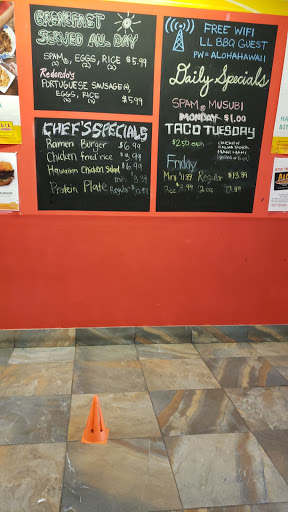 BREAKFAST
SERVED ALL DAY
SPAM®, EGGS, RICE $5.99
(2) (2)
Redondo's
PORTUGUESE SAUSAGE(4),
EGGS, RICE
(2)
$5.99
CHEF'S SPECIALS
Ramen Burger $6.99
Chicken fried rice
Hawaiian Chicken Salad
mini
Protein Plate Regular
FREE WIFI
LL BBQ GUEST
PW=ALOHAHAWAII
Daily Specials
SPAM® MUSUBI
MONDAY $1.00
TACO TUESDAY
$2.50 each
CHICKEN
KALUA PORK
MAHI MAHI
Friday
Mini Regular $13.99